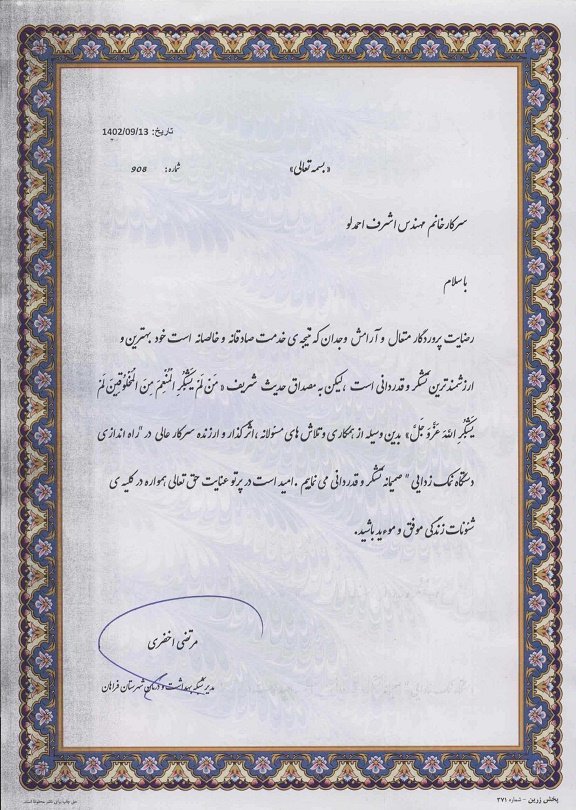 تاریخ: 1402/09/13
شماره: 908
«بسمه تعالی»
سرکار خانم مهندس اشرف احمدلو
با سلام
رضایت پروردگار متعال و آرامش وجدان که نتیجه ی خدمت صادقانه و خالصانه است خود بهترین و
ارزشمندترین تشکر و قدردانی است ، لیکن به مصداق حدیث شریف « مَنْ لَمْ یَشْکُرِ الْمُنْعِمَ مِنَ الْمَخْلُوقِینَ لَمْ
یَشْکُرِ اللهَ عَزَّوَجَلَّ» بدین وسیله از همکاری و تلاش های مسئولانه ، اثرگذار و ارزنده سرکار عالی در "راه اندازی
دستگاه نمک زدایی" صمیمانه تشکر و قدردانی می نمایم . امید است در پرتو عنایت حق تعالی همواره در کلیه ی
شئونات زندگی موفق و موءید باشید.
مرتضی اخضری
مدیر شبکه بهداشت و درمان شهرستان فراهان
پخش زرین - شماره ۳۷۱
حق چاپ برای ناشر محفوظ است.